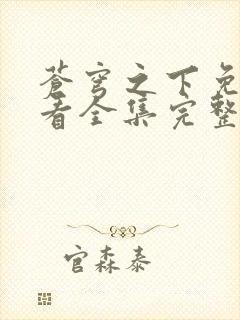 苍穹之下免
看全集完整
官森泰